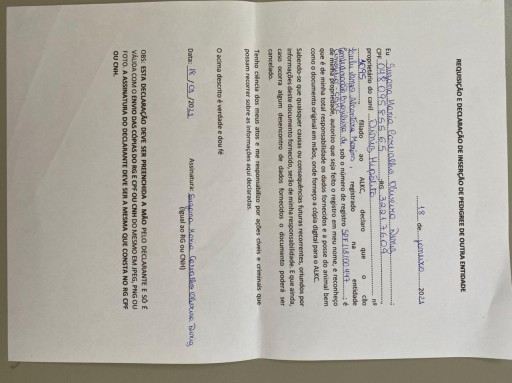 REQUISIÇÃO E DECLARAÇÃO DE INSERÇÃO DE PEDIGREE DE OUTRA ENTIDADE
18 de janeiro 2021
Eu Susana Maria Carvalho Oliveira
CPF RG
proprietário do canil nº
filiado ao ALKC, declaro que o cão
registrado na entidade
sob o número de registro é
de minha propriedade, autorizo que seja feito o registro em meu nome, e reconheço
que é de minha total responsabilidade os dados fornecidos e a posse do animal bem
como o documento original em mãos, onde forneço a cópia digital para o ALKC.
Sabendo-se que quaisquer causas ou consequências futuras recorrentes, oriundos por
informações deste documento fornecido, serão de minha responsabilidade. E que ainda,
caso ocorra algum desencontro de dados fornecidos o documento poderá ser
cancelado.
Tenho ciência dos meus atos e me responsabilizo por ações cíveis e criminais que
possam recorrer sobre as informações aqui declaradas.
O acima descrito é verdade e dou fé
Data: 18 / 01 / 2021 Assinatura: Susana Maria Carvalho Oliveira
(igual ao RG ou CNH)
OBS: ESTA DECLARAÇÃO DEVE SER PREENCHIDA A MÃO PELO DECLARANTE E SÓ É
VÁLIDA COM O ENVIO DAS CÓPIAS DO RG E CPF OU CNH DO MESMO EM JPEG, PNG OU
FOTO. A ASSINATURA DO DECLARANTE DEVE SER A MESMA QUE CONSTA NO RG CPF
OU CNH.